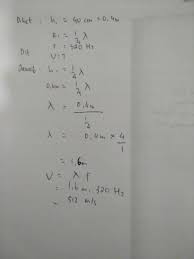 Diket : h₁ = 40 cm = 0,4 m
λ₁ = 1/4 λ
f = 320 Hz
Dit V = ?
Jawab : h₁ = 1/4 λ
0,4m = 1/4 λ
λ = 0,4m / 1/4
λ = 0,4m × 4/1
= 1,6m
V = λ f
= 1,6m . 320 Hz
= 512 m/s